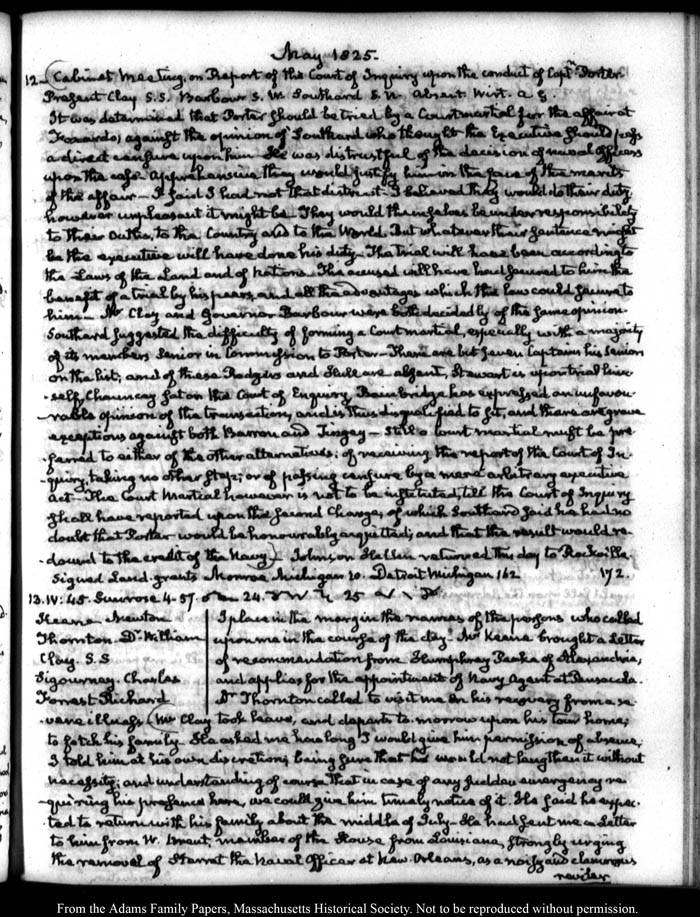 May 1825.
12. (Cabinet Meeting, on Report of the Court of Inquiry upon the conduct of Captn. Porter.
Present Clay S.S. Barbour S.W. Southard S.N. Absent. Wirt. A.G.
It was determined that Porter should be tried by a Court martial for the affair at
Foxardo; against the opinion of Southard who thought the Executive should pass
a direct censure upon him. He was distrustful of the decision of naval Officers
upon the case apprehensive they would justify him in the face of the merits
of the affair— I said I had not that distrust. I believed they would do their duty,
however unpleasant it might be. They would themselves be under responsibility
to their Oaths, to the Country and to the World. But whatever their sentence might
be the executive will have done his duty. The trial will have been according to
the Laws of the Land and of Nations. The accused will have had secured to him the
benefit of a trial by his peers, and all the advantages which the law could secure to
him— Mr. Clay and Governor Barbour were both decidedly of the same opinion.
Southard suggested the difficulty of forming a Court martial, especially with a majority
of its members Senior in Commission to Porter— There are but seven Captains his seniors
on the list; and of these Rodgers and Hull are absent, Stewart is upon trial him-
-self, Chauncey sat on the Court of Enquiry Bainbridge has expressed an unfavou-
-rable opinion of the transaction, and is thus disqualified to sit, and there are grave
exceptions against both Barron and Tingey— Still a Court martial must be pre-
-ferred to either of the other alternatives; of receiving the report of the Court of In-
-quiry, taking no other step; or of passing censure by a mere arbitrary executive
act— The Court Martial however is not to be instituted, till the Court of Inquiry
shall have reported upon the second Charge; of which Southard said he had no
doubt that Porter would be honourably acquitted; and that the result would re-
-dound to the credit of the Navy) Johnson Hellen returned this day to Rockville.
Signed Land-grants Monroe Michigan 10. Detroit Michigan 162. 172.
13. IV:45. Sunrose 4-57. 24. 25
Keene Newton
Thornton Dr. William
Clay. S.S
Sigourney. Charles
Forrest Richard
I place in the margin the names of the persons who called
upon me in the course of the day. Mr. Keene brought a Letter
of recommendation from Humphrey Peake of Alexandria,
and applies for the appointment of Navy Agent at Pensacola.
Dr. Thornton called to visit me on his recovery from a se-
-vere illness (Mr Clay took leave, and departs to-morrow upon his tour home,
to fetch his family. He asked me how long I would give him permission of absence,
I told him at his own discretion; being sure that he would not lengthen it without
necessity; and understanding of course that in case of any sudden emergency re-
-quiring his presence here, we could give him timely notice of it. He said he expec-
-ted to return with his family about the middle of July— He had sent me a Letter
to him from W. Brent, member of the House from Louisiana, strongly urging
the removal of Sterret the Naval Officer at New-Orleans, as a noisy and clamorous
reviler
From the Adams Family Papers, Massachusetts Historical Society. Not to be reproduced without permission.